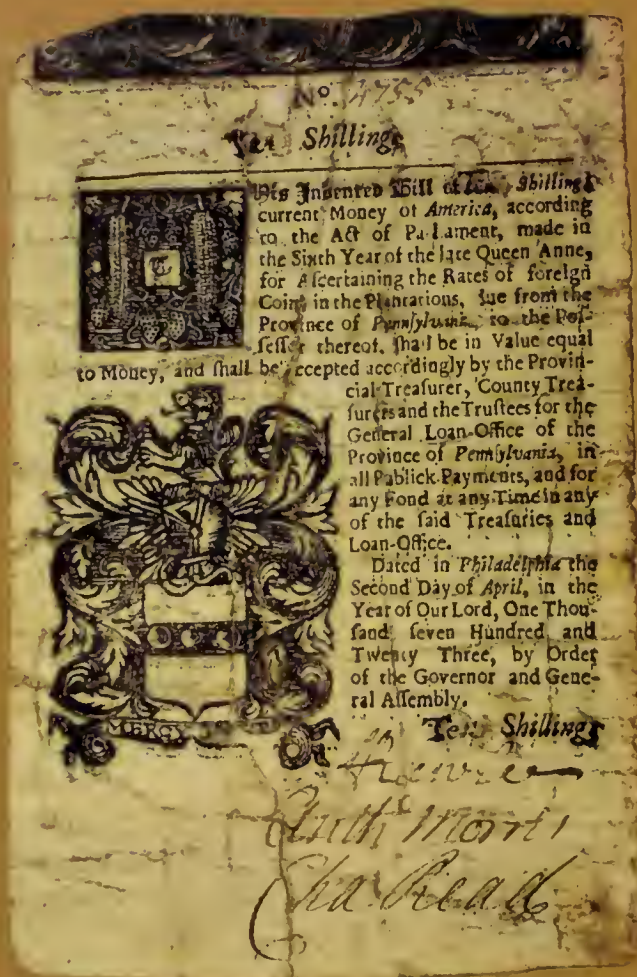 No. 4755
Ten Shillings
This Indented Bill of Ten Shillings
current Money of America, according
to the Act of Parliament, made in
the Sixth Year of the late Queen Anne,
for Ascertaining the Rates of foreign
Coins in the Plantations, due from the
Province of Pennsylvania, to the Pos-
sessor thereof, shall be in Value equal
to Money, and shall be accepted accordingly by the Provin-
cial Treasurer, County Trea-
surers and the Trustees for the
General Loan-Office of the
Province of Pennsylvania, in
all Publick Payments, and for
any Fond at any Time in any
of the said Treasuries and
Loan-Office.
Dated in Philadelphia the
Second Day of April, in the
Year of Our Lord, One Thou-
sand seven Hundred and
Twenty Three, by Order
of the Governor and Gene-
ral Assembly.
MERCY
Ten Shillings
Anth Morris
Cha Read